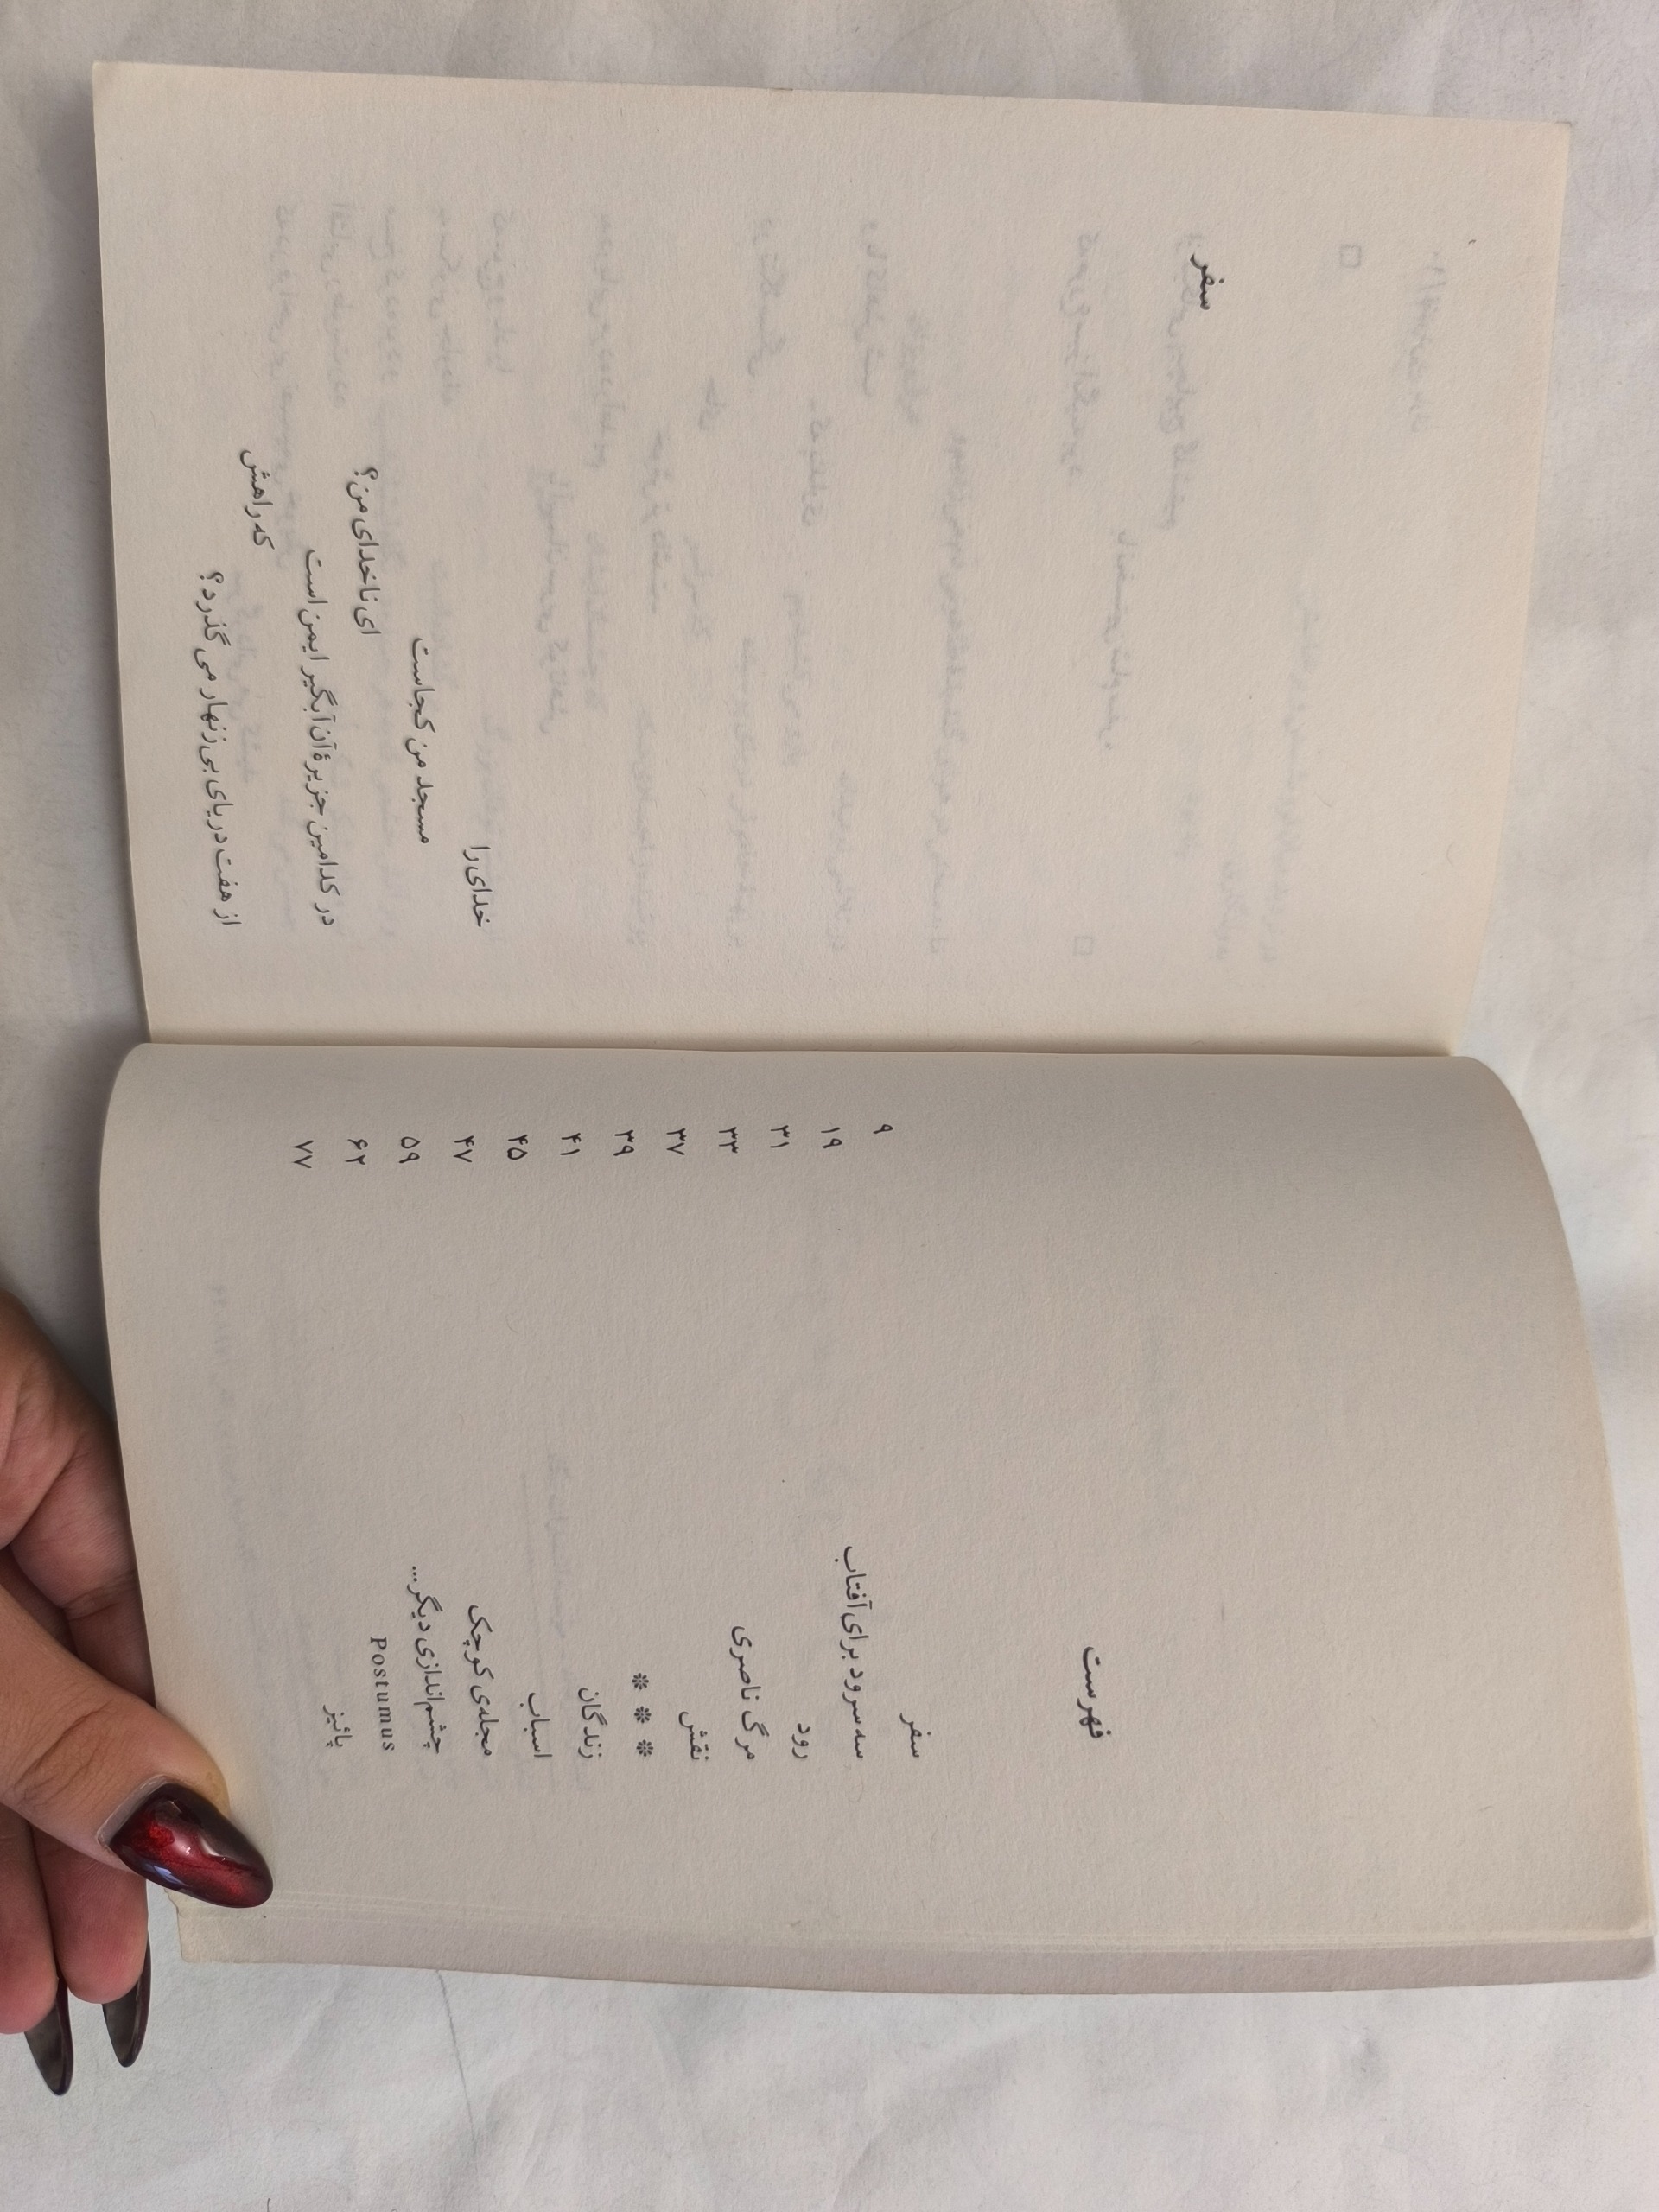 فهرست
سفر ۹
سه سرود برای آفتاب ۱۹
رود ۳۱
مرگ ناصری ۳۳
نقش ۳۷
* * * ۳۹
زندگان ۴۱
اسباب ۴۵
مجله‌ی کوچک ۴۷
چشم‌اندازی دیگر... ۵۹
Postumus ۶۲
پائیز ۷۷
سفر
خدای را
مسجد من کجاست
ای ناخدای من؟
در کدامین جزیرهٔ آن آبگیر ایمن است
که راهش
از هفت دریای بی‌زنهار می‌گذرد؟